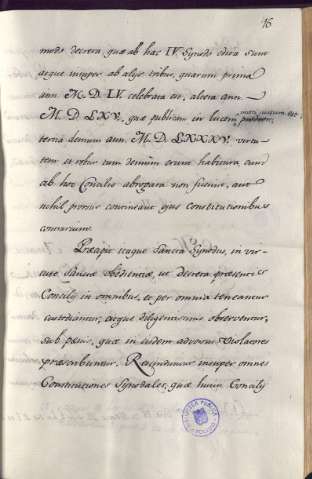 16
modi decreta quæ ab hac IV. Synodi edita sunt
atque insuper ab alijs tribus, quarum prima
ann. M. D. LV. celebrata est, altera ann.
M. D. LXV, quæ publicam in lucem
tertia demum ann. M. D. LXXXV. virtu-
tem et robur tum demum erunt habitura, cum
ab hoc Concilio abrogata non fuerint, aut
nihil prorsus contineant ejus Constitutionibus
contrarium.
Præcipit itaque Sancta Synodus, in vir-
tute Sanctæ Obedientiæ, ut decreta præsentis
Concilij in omnibus, et per omnia teneantur
custodiantur, atque diligentissime observentur,
sub pœnis, quæ in eisdem adversus Violatores
præscribuntur. Rescinduntur insuper omnes
Constitutiones Synodales, quæ huius Concilij